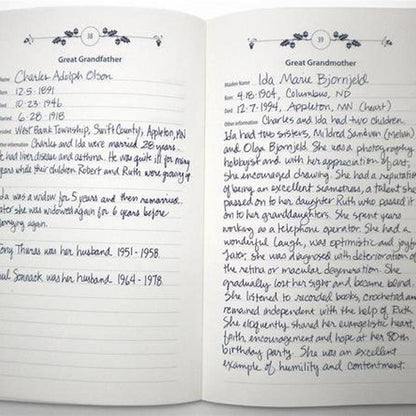 38
Great Grandfather
Name Charles Adolph Olson
Born 12.5.1891
Died 10.23.1946
Married 6.28.1918
Resided West Bank Township, Swift County, Appleton, MN
Other information Charles and Ida were married 28 years.
He had liver disease and asthma. He was quite ill for many
years while their children Robert and Ruth were growing up
Ida was a widow for 5 years and then remarried.
Later she was widowed again for 6 years before
marrying again.
Tony Theras was her husband 1951-1958.
Paul Sonnack was her husband 1964-1978.
39
Great Grandmother
Maiden Name Ida Marie Bjornjeld
Born 4.18.1904, Columbus, ND
Died 12.7.1994, Appleton, MN (heart)
Other information Charles and Ida had two children.
Ida had two sisters, Mildred Sandven (Melvin)
and Olga Bjornjeld. She was a photography
hobbyist and with her appreciation of art,
she encouraged drawing. She had a reputation
of being an excellent seamstress, a talent she
passed on to her daughter Ruth who passed it
on to her granddaughters. She spent years
working as a telephone operator. She had a
wonderful laugh, was optimistic and joyful.
Later, she was diagnosed with deterioration of
the retina or macular degeneration. She
gradually lost her sight and became blind.
She listened to recorded books, crocheted and
remained independent with the help of Ruth.
She eloquently shared her evangelistic heart,
faith, encouragement and hope at her 80th
birthday party. She was an excellent
example of humility and contentment.